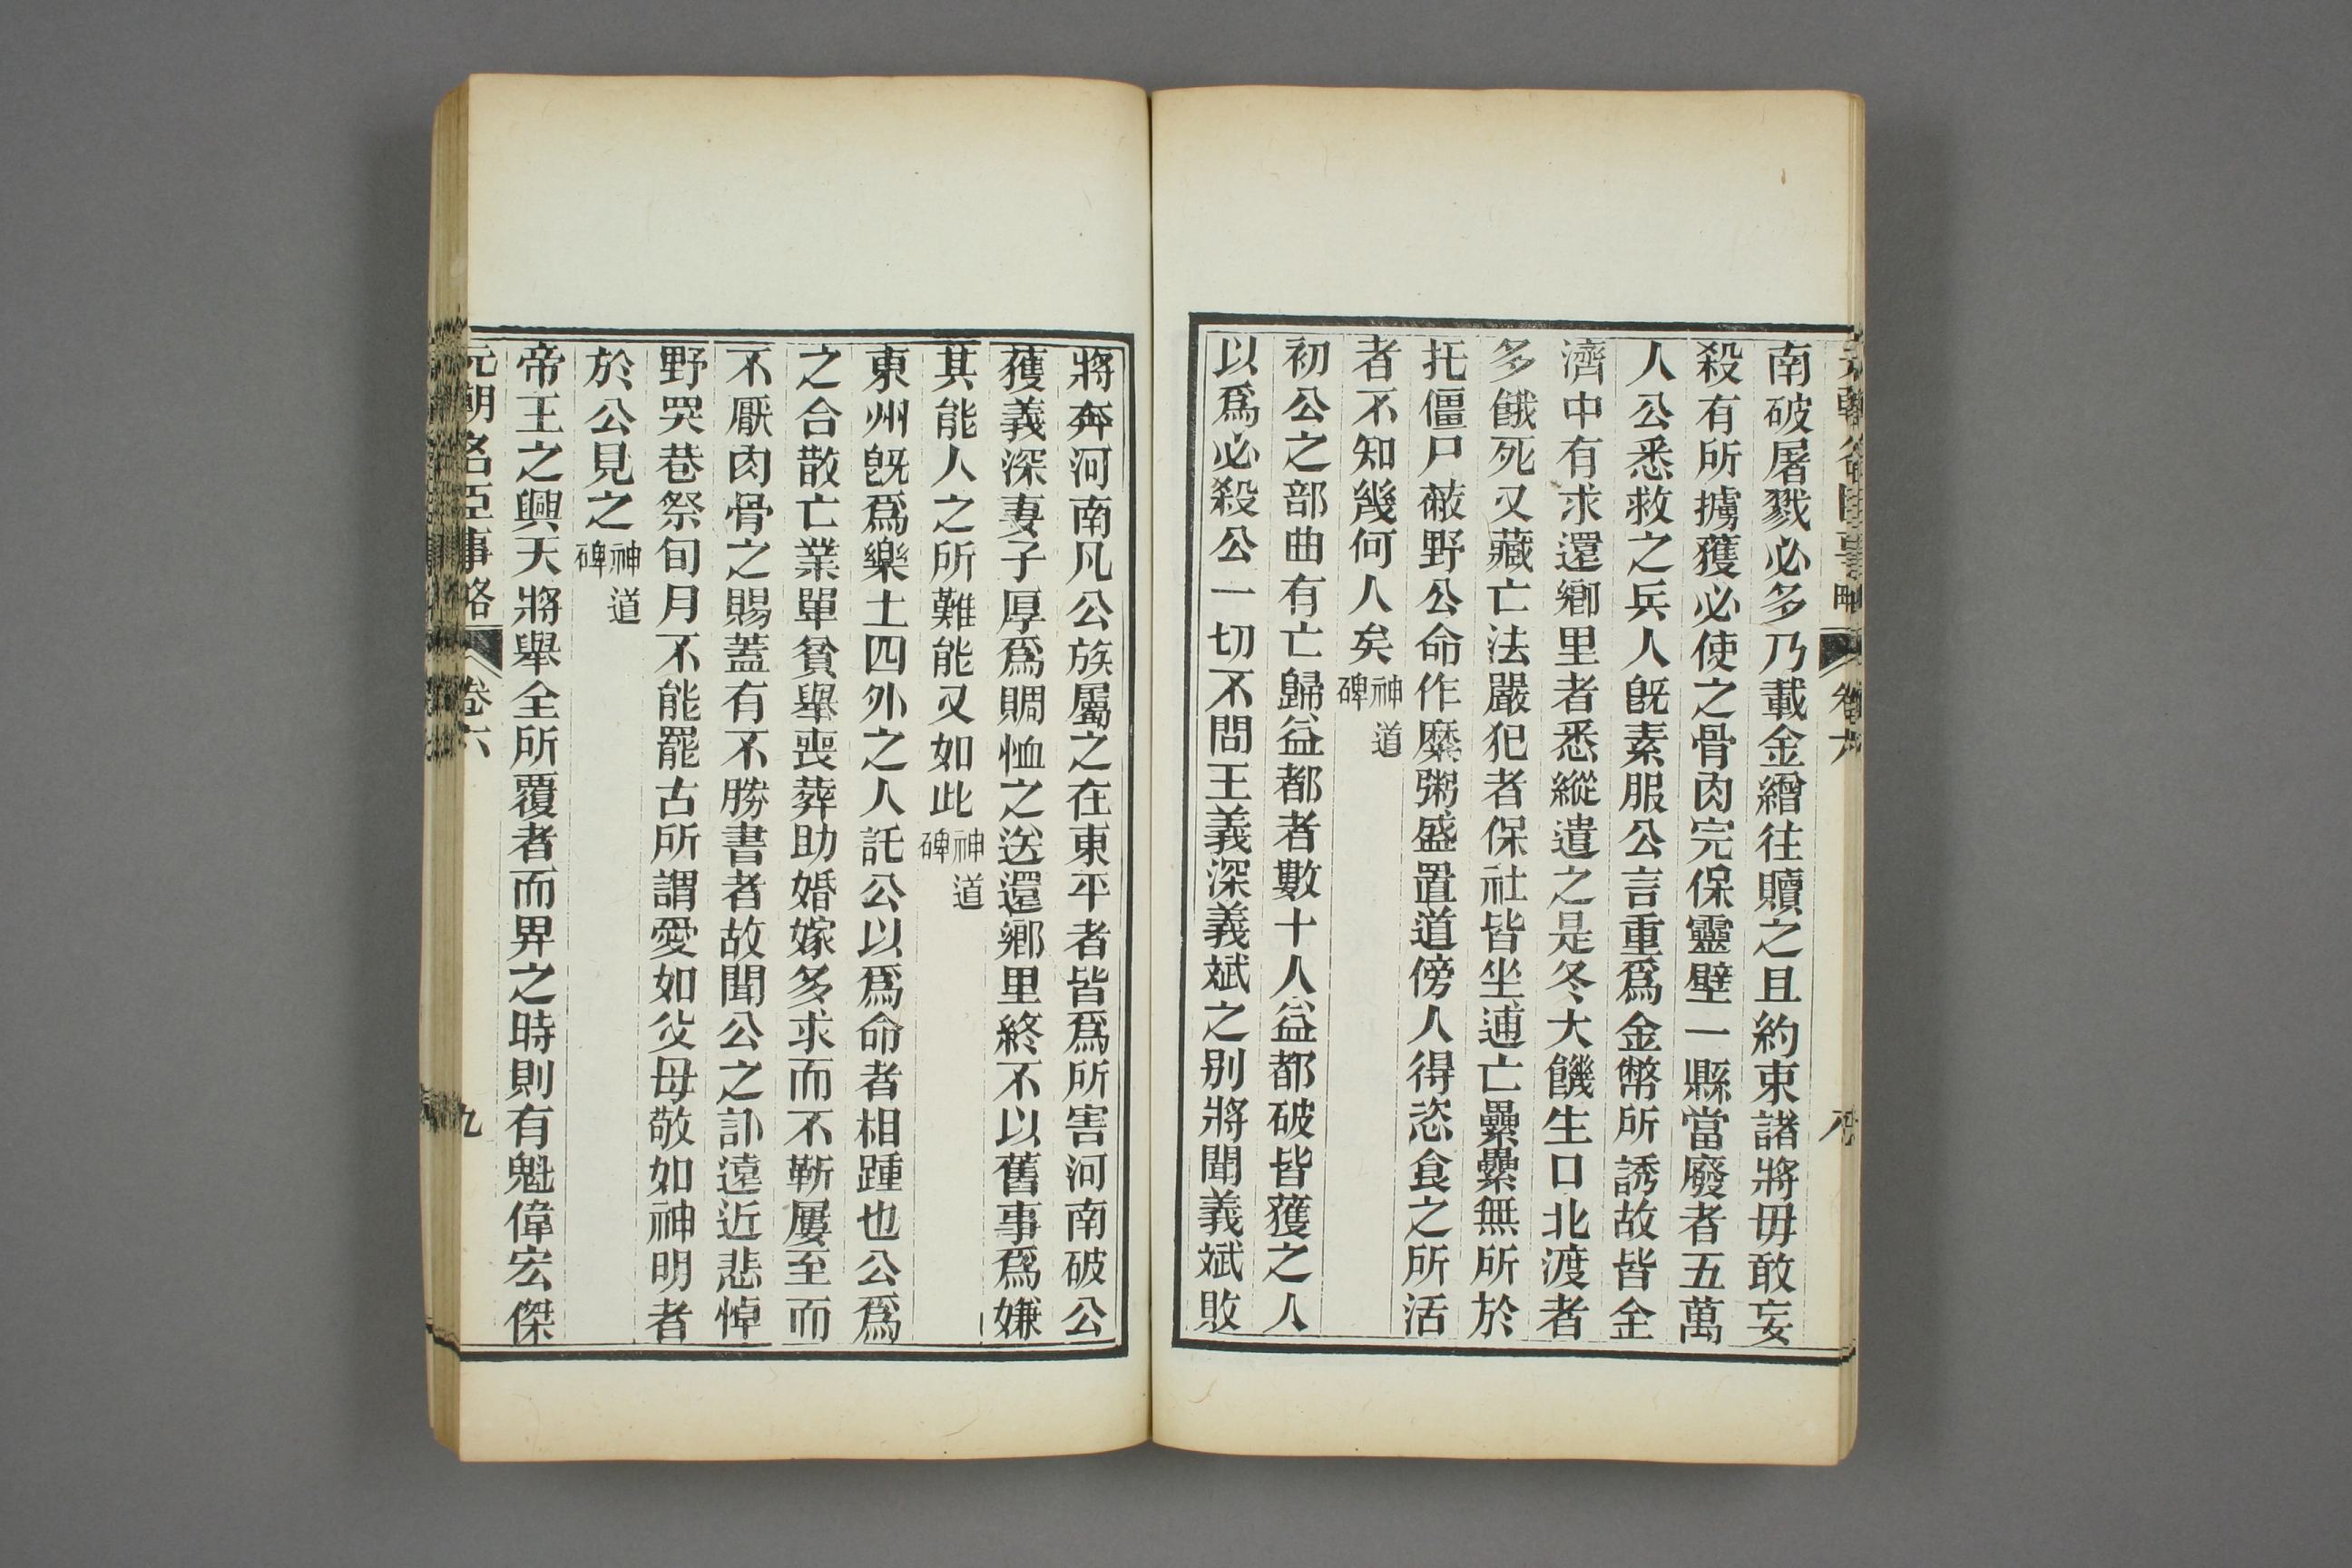 南破屠戮必多乃載金繒往贖之且約束諸將毋敢妄
殺有所擄獲必使之骨肉完保靈壁一縣當廢者五萬
人公悉救之兵人旣素服公言重爲金幣所誘故皆全
濟中有求還鄉里者悉縱遣之是冬大饑生口北渡者
多餓死又藏亡法嚴犯者保社皆坐逋亡纍纍無所於
托僵尸蔽野公命作糜粥盛置道傍人得恣食之所活
者不知幾何人矣神道碑
初公之部曲有亡歸益都者數十人益都破皆獲之人
以爲必殺公一切不問王義深義斌之別將聞義斌敗
將奔河南凡公族屬之在東平者皆爲所害河南破公
獲義深妻子厚爲賙恤之送還鄉里終不以舊事爲嫌
其能人之所難能又如此神道碑
東州旣爲樂土四外之人託公以爲命者相踵也公爲
之合散亡業單貧舉喪葬助婚嫁多求而不靳屢至而
不厭肉骨之賜蓋有不勝書者故聞公之訃遠近悲悼
野哭巷祭旬月不能罷古所謂愛如父母敬如神明者
於公見之神道碑
帝王之興天將舉全所覆者而畀之時則有魁偉宏傑
元朝名臣事略 卷六 九